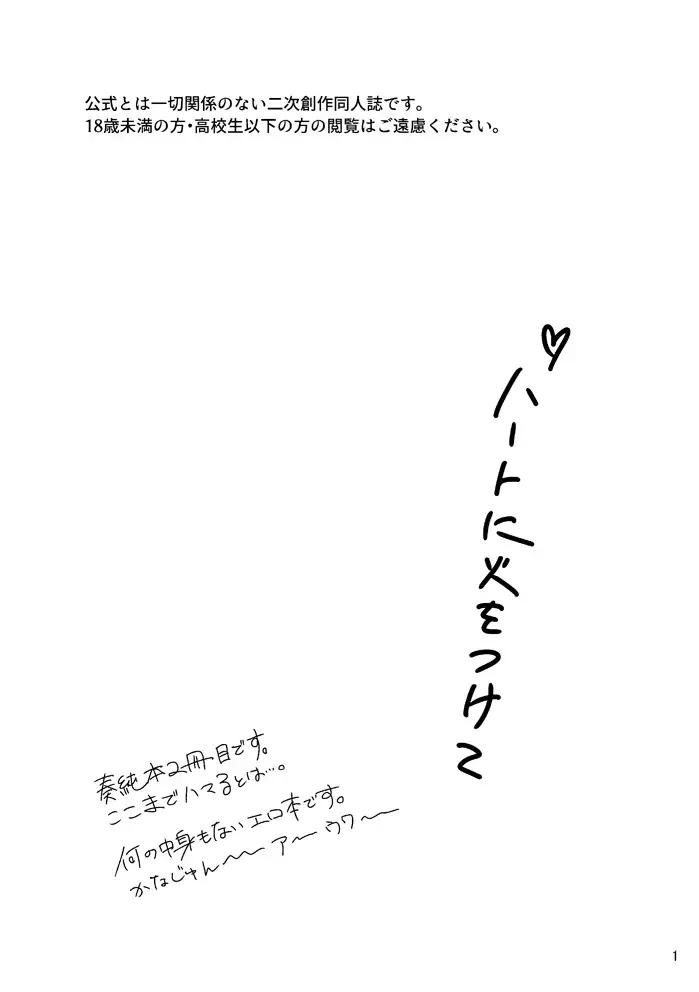 公式とは一切関係のない二次創作同人誌です。
18歳未満の方・高校生以下の方の閲覧はご遠慮ください。
♡ハートに火をつけて
奏純本2冊目です。
ここまでハマるとは…。
何の中身もないエロ本です。
かなじゅん〜〜 ア〜 ウワ〜〜
1